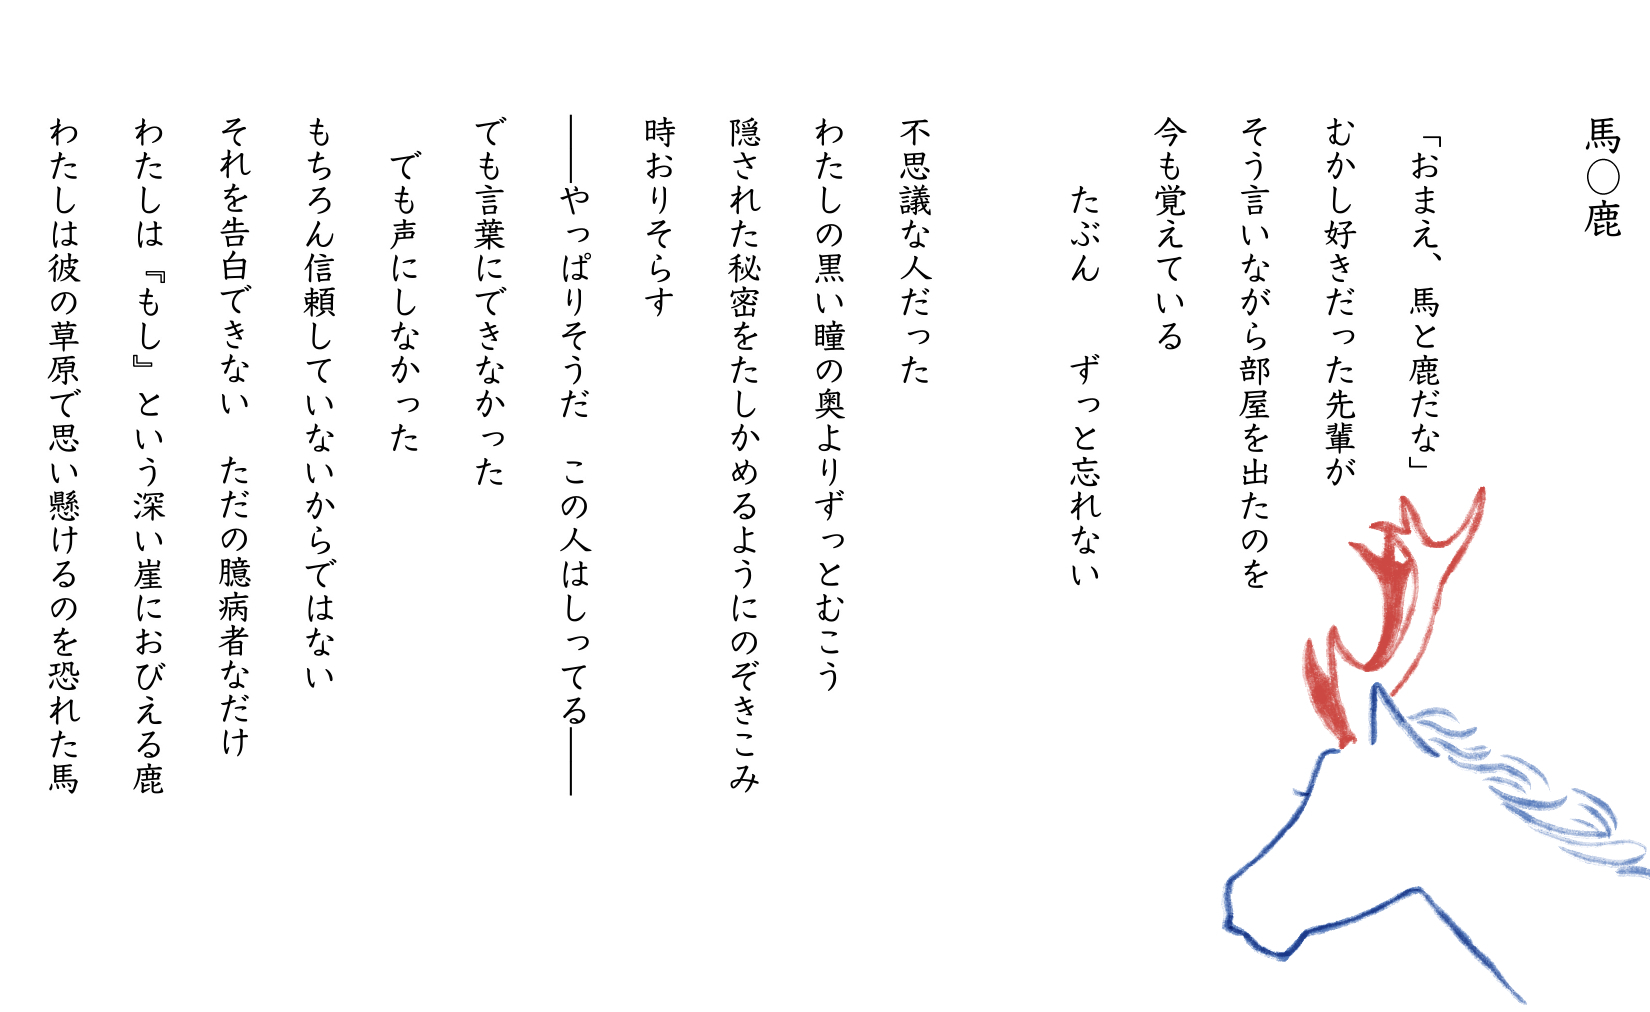 馬〇鹿
「おまえ、馬と鹿だな」
むかし好きだった先輩が
そう言いながら部屋を出たのを
今も覚えている
　　たぶん　　ずっと忘れない
不思議な人だった
わたしの黒い瞳の奥よりずっとむこう
隠された秘密をたしかめるようにのぞきこみ
時おりそらす
――やっぱりそうだ　この人はしってる――
でも言葉にできなかった
　でも声にしなかった
もちろん信頼していないからではない
それを告白できない　ただの臆病者なだけ
わたしは『もし』という深い崖におびえる鹿
わたしは彼の草原で思い懸けるのを恐れた馬